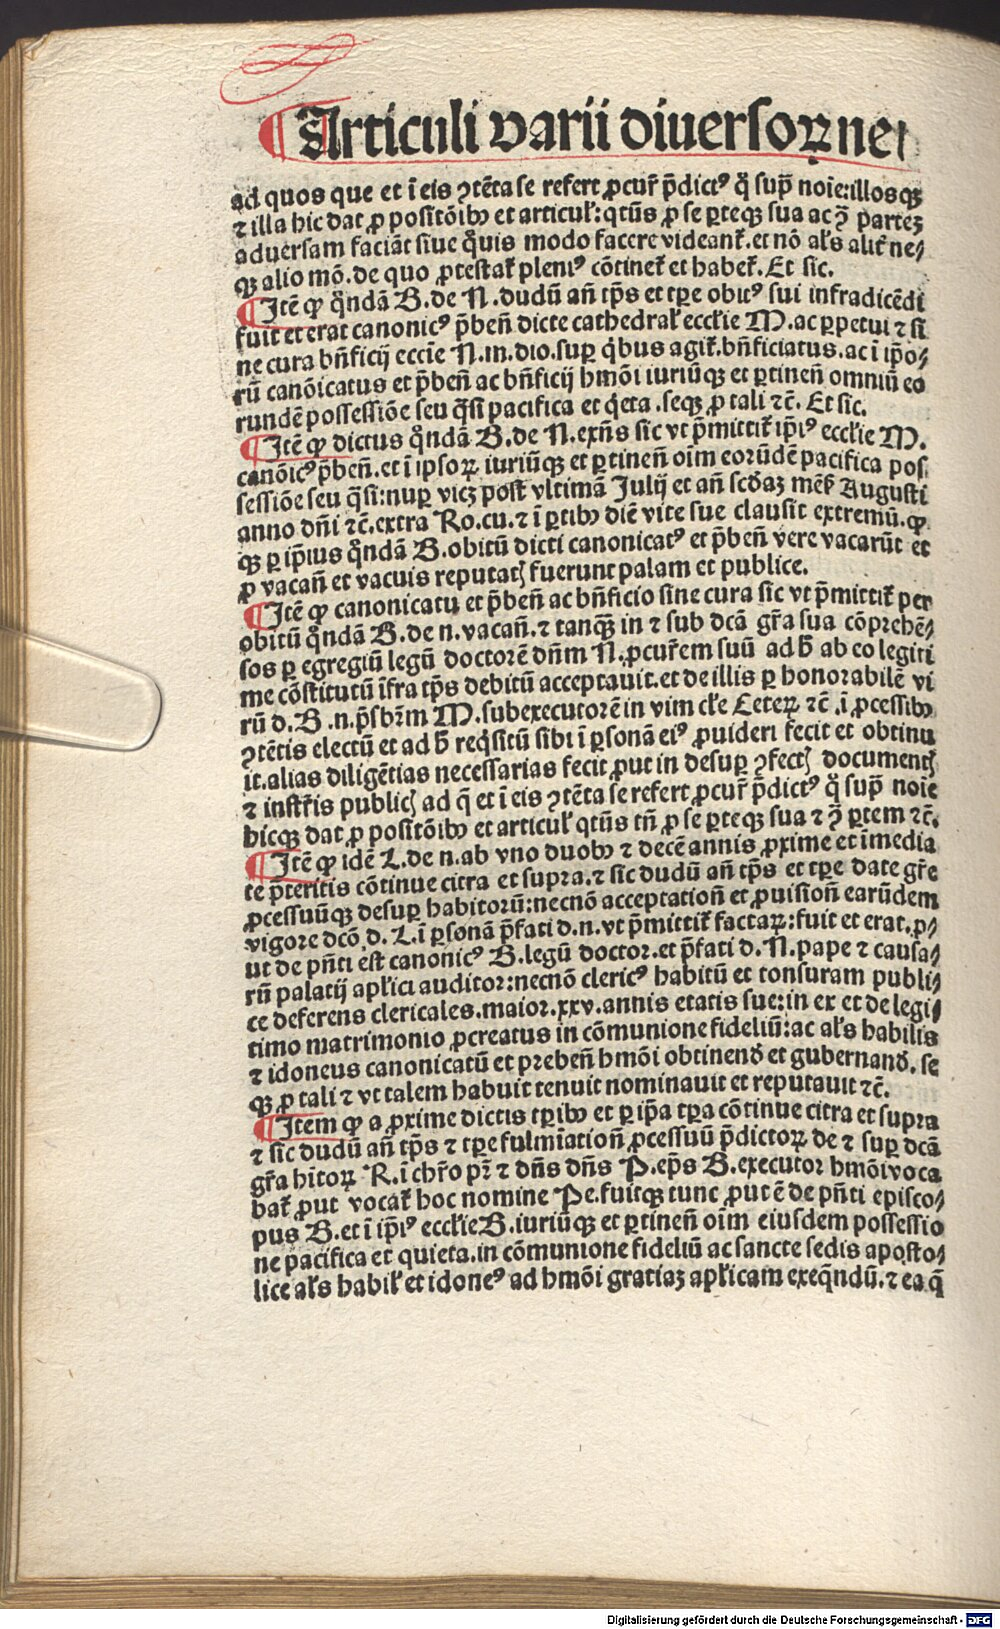 ¶ Articuli varii diuersoꝝ ne⸗
ad quos que et ī eis ꝯtēta se refert ꝓcur̄ p̄dictꝰ q̊ sup̄ noīe: illosqꝫ
⁊ illa hic dat ꝓ positōibꝰ et articul̄: qtūs ꝓ se ꝑteqꝫ sua ac ꝯ̄ partez
aduersam faciāt siue q̊uis modo facere videant̄. et nō al̄s alit̄ ne⸗
qꝫ alio mō. de quo ꝓtestat̄ pleniꝰ cōtinet̄ et habet̄. Et sic.
¶ Itē ꝙ q̊ndā B. de N. dudū an̄ tp̄s et tꝑe obitꝰ sui infradicēdi
fuit et erat canonicꝰ p̄ben̄ dicte cathedral̄ eccl̄ie M. ac ꝑpetui ⁊ si
ne cura bn̄ficij eccīe N. in. dio. suꝑ q̇bus agit̄. bn̄ficiatus. ac ī ip̄o⸗
rū canōicatus et p̄ben̄ ac bn̄ficij hmōi iuriūqꝫ et ꝑtinen̄ omniū eo
rundē possessiōe seu q̄si pacifica et q̇eta. seqꝫ ꝓ tali ⁊c̄. Et sic.
¶ Itē ꝙ dictus q̊ndā B. de N. exn̄s sic vt p̄mittit̄ ip̄iꝰ eccl̄ie M.
canōicꝰ p̄ben̄. et ī ipsoꝝ iuriūqꝫ et ꝑtinen̄ oīm eorūdē pacifica pos
sessiōe seu q̄si: nuꝑ vicꝫ post vltimā Julij et an̄ scd̄aꝫ mēs̄ Augusti
anno dn̄i ⁊c̄. extra Ro. cu. ⁊ ī ꝑtibꝰ diē vite sue clausit extremū. ꝙ
qꝫ ꝑ ip̄ius q̊ndā B. obitū dicti canonicatꝰ et p̄ben̄ vere vacarūt et
ꝓ vacan̄ et vacuis reputatꝭ fuerunt palam et publice.
¶ Itē ꝙ canonicatu et p̄ben̄ ac bn̄ficio sine cura sic vt p̄mittit̄ per
obitū q̊ndā B. de n. vacan̄. ⁊ tanqꝫ in ⁊ sub dcā gr̄a sua cōprehē⸗
sos ꝑ egregiū legū doctorē dn̄m N. ꝓcur̄em suū ad h̄ ab eo legiti
me cōstitutū īfra tp̄s debitū acceptauit. et de illis ꝑ honorabilē vi
rū d. B. n. p̄sbr̄m M. subexecutorē in vim cl̄e Ceteꝝ ⁊c̄. ī ꝓcessibꝰ
ꝯtētis electū et ad h̄ req̇sitū sibi ī ꝑsonā eiꝰ ꝓuideri fecit et obtinu
it. alias diligētias necessarias fecit ꝓut in desuꝑ ꝯfectꝭ documentꝭ
⁊ instr̄is publicꝭ ad q̄ et ī eis ꝯtēta se refert ꝓcur̄ p̄dictꝰ q̊ sup̄ noīe
hicqꝫ dat ꝓ positōibꝰ et articul̄ qtūs tn̄ ꝓ se ꝑteqꝫ sua ⁊ ꝯ̄ ꝑtem ⁊c̄.
¶ Itē ꝙ idē L. de n. ab vno duobꝰ ⁊ decē annis ꝓxime et īmedia
te p̄teritis cōtinue citra et supra. ⁊ sic dudū an̄ tp̄s et tꝑe date gr̄e
ꝓcessuūqꝫ desuꝑ habitorū: necnō acceptation̄ et ꝓuision̄ earūdem
vigore dcō d. L. ī ꝑsonā p̄fati d. n. vt p̄mittit̄ factaꝝ: fuit et erat. ꝓ⸗
ut de pn̄ti est canonicꝰ B. legū doctor. et p̄fati d. N. pape ⁊ causa⸗
rū palatij apl̄ici auditor: necnō clericꝰ habitū et tonsuram publi⸗
ce deferens clericales. maior. xxv. annis etatis sue: in ex et de legi⸗
timo matrimonio ꝓcreatus in cōmunione fideliū: ac al̄s habilis
⁊ idoneus canonicatū et preben̄ hmōi obtinend̄ et gubernand̄. se
qꝫ ꝓ tali ⁊ vt talem habuit tenuit nominauit et reputauit ⁊c̄.
¶ Item ꝙ a ꝓxime dictis tꝑibꝰ et ꝑ ip̄a tꝑa cōtinue citra et supra
⁊ sic dudū an̄ tp̄s ⁊ tꝑe fulmīation̄ ꝓcessuū p̄dictoꝝ de ⁊ suꝑ dcā
gr̄a hītoꝝ R. ī chr̄o pr̄ ⁊ dn̄s dn̄s P. ep̄s B. executor hmōi voca
bat̄ ꝓut vocat̄ hoc nomine Pe. fuitqꝫ tunc ꝓut ē de pn̄ti episco⸗
pus B. et ī ip̄iꝰ eccl̄ie B. iuriūqꝫ et ꝑtinen̄ oīm eiusdem possessio
ne pacifica et quieta. in cōmunione fideliū ac sancte sedis aposto⸗
lice al̄s habil̄ et idoneꝰ ad hmōi gratiaꝫ apl̄icam exeq̄ndū. ⁊ ea q̄
Digitalisierung gefördert durch die Deutsche Forschungsgemeinschaft - DFG